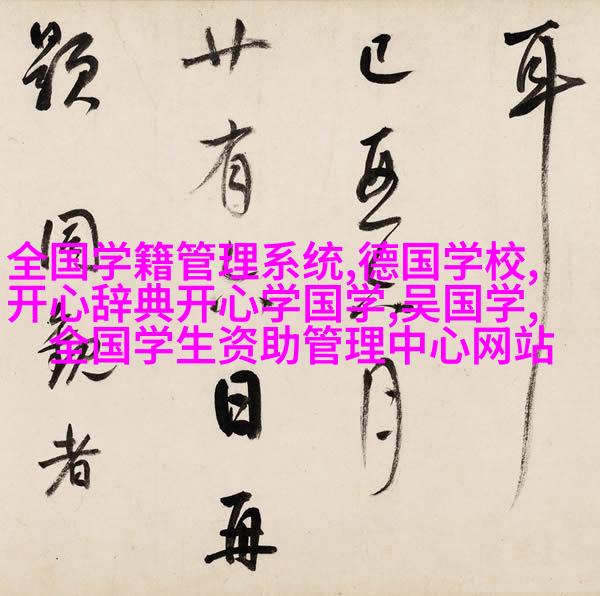 耳
月
廿有日再
題同觀者
全国学籍管理系统,德国学校,
开心辞典开心学国学,吴国学,
全国学生资助管理中心网站